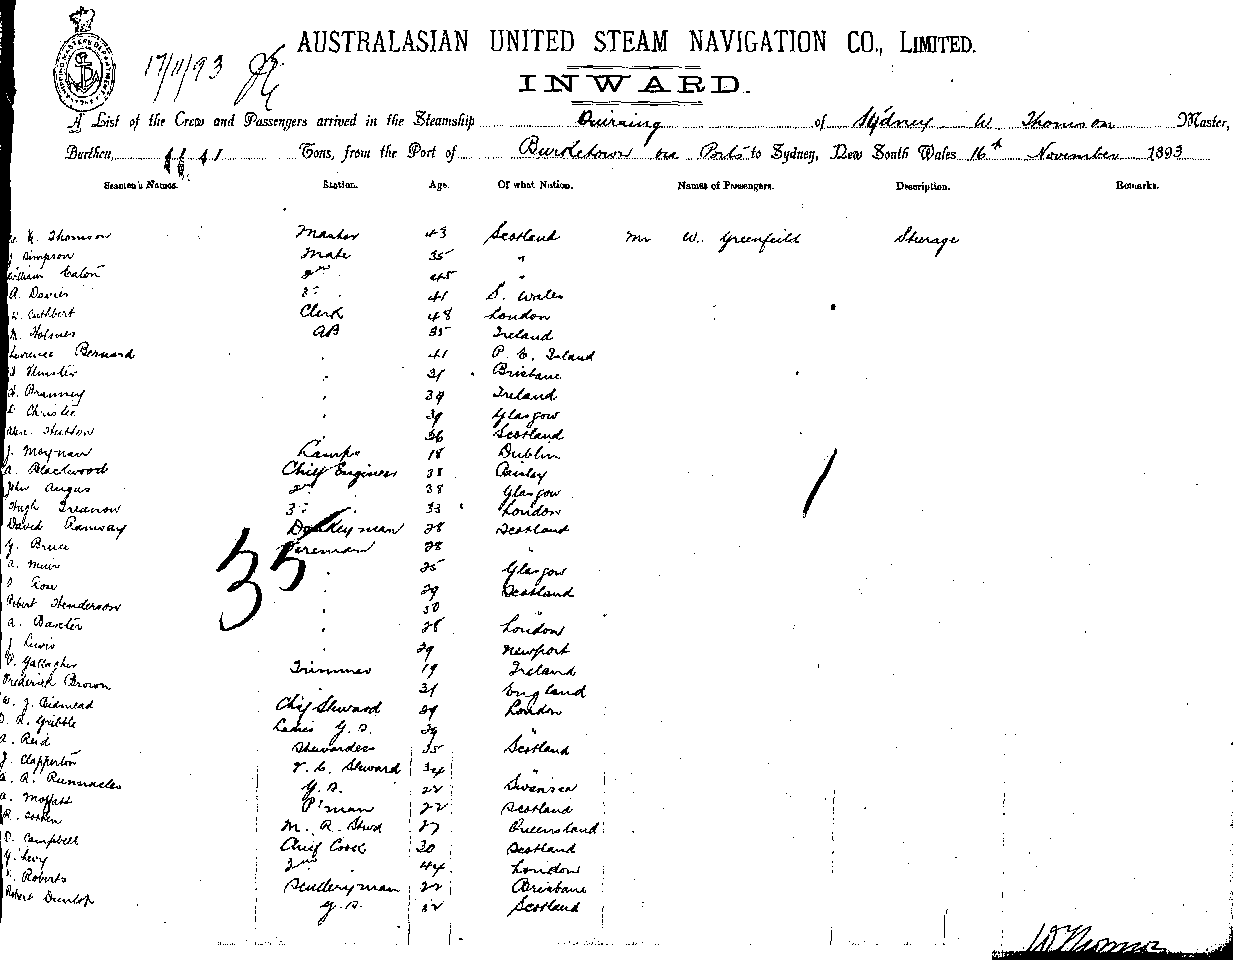 17/11/93
AUSTRALASIAN UNITED STEAM NAVIGATION CO., LIMITED.
INWARD.
A List of the Crew and Passengers arrived in the Steamship Quiraing of Sydney W Thomson Master,
Burthen, Tons, from the Port of Burketown via Ports to Sydney, New South Wales 16th November 1893
Seamen's Names. Station. Age. Of what Nation. Names of Passengers. Description. Remarks.
Thomson Master 43 Scotland Mr W. Greenfield Steerage
Simpson Mate 35 "
William Eaton 2nd 45 "
A. Davies 3d 41 S. Wales
W. Cuthbert Clerk 48 London
Holmes AB 35 Ireland
Lawrence Bernard " 41 P. E. Island
" 31 Brisbane
Branney " 39 Ireland
Christie " 39 Glasgow
Alex. Hutton 36 Scotland
J. Moynan Lamps 18 Dublin
A. Blackwood Chief Engineer 38 Paisley
John Angus 2nd 38 Glasgow
Hugh Treanor 3d 33 London
David Ramsay Donkeyman 28 Scotland
G. Bruce Fireman 28 "
A. Muir " 25 Glasgow
Rose " 29 Scotland
Robert Henderson " 30
A. Baxter " 28 London
J. Lewis 29 Newport
Gallagher Trimmer 19 Ireland
Frederick Brown 31 England
W. J. Bidmead Chief Steward 29 London
Gribble Ladies G.S. 39 "
A. Reid Stewardess 35 Scotland
J. Clapperton F. C. Steward 34 "
A. R. Runnacles G.S. 22 Swansea
A. Moffatt P'man 22 Scotland
R. M. R. Stwd 27 Queensland
D. Campbell Chief Cook 30 Scotland
G. Levy 2nd 44 London
Roberts Sculleryman 22 Brisbane
Robert Dunlop G.S. 32 Scotland
35
1
W Thomson